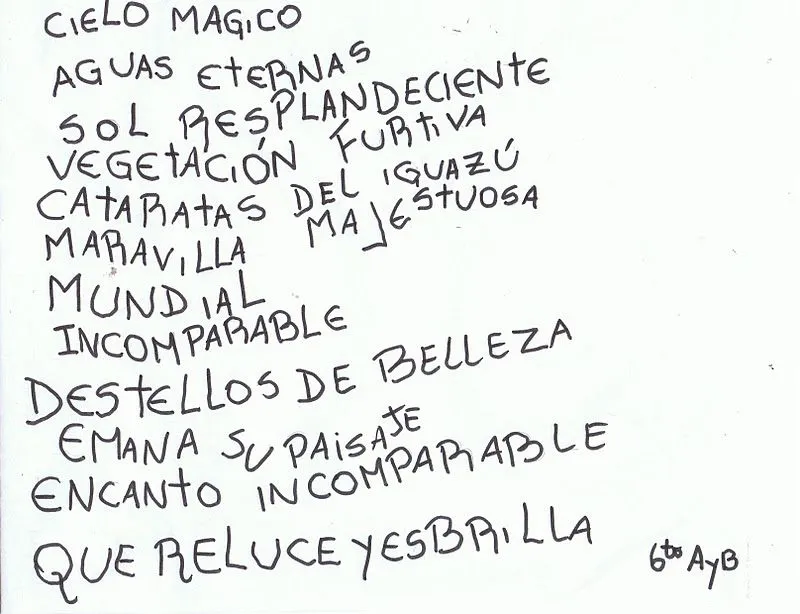 CIELO MAGICO
AGUAS ETERNAS
SOL RESPLANDECIENTE
VEGETACIÓN FURTIVA
CATARATAS DEL IGUAZÚ
MARAVILLA MAJESTUOSA
MUNDIAL
INCOMPARABLE
DESTELLOS DE BELLEZA
EMANA SU PAISAJE
ENCANTO INCOMPARABLE
QUE RELUCE Y ESBRILLA
6to A y B